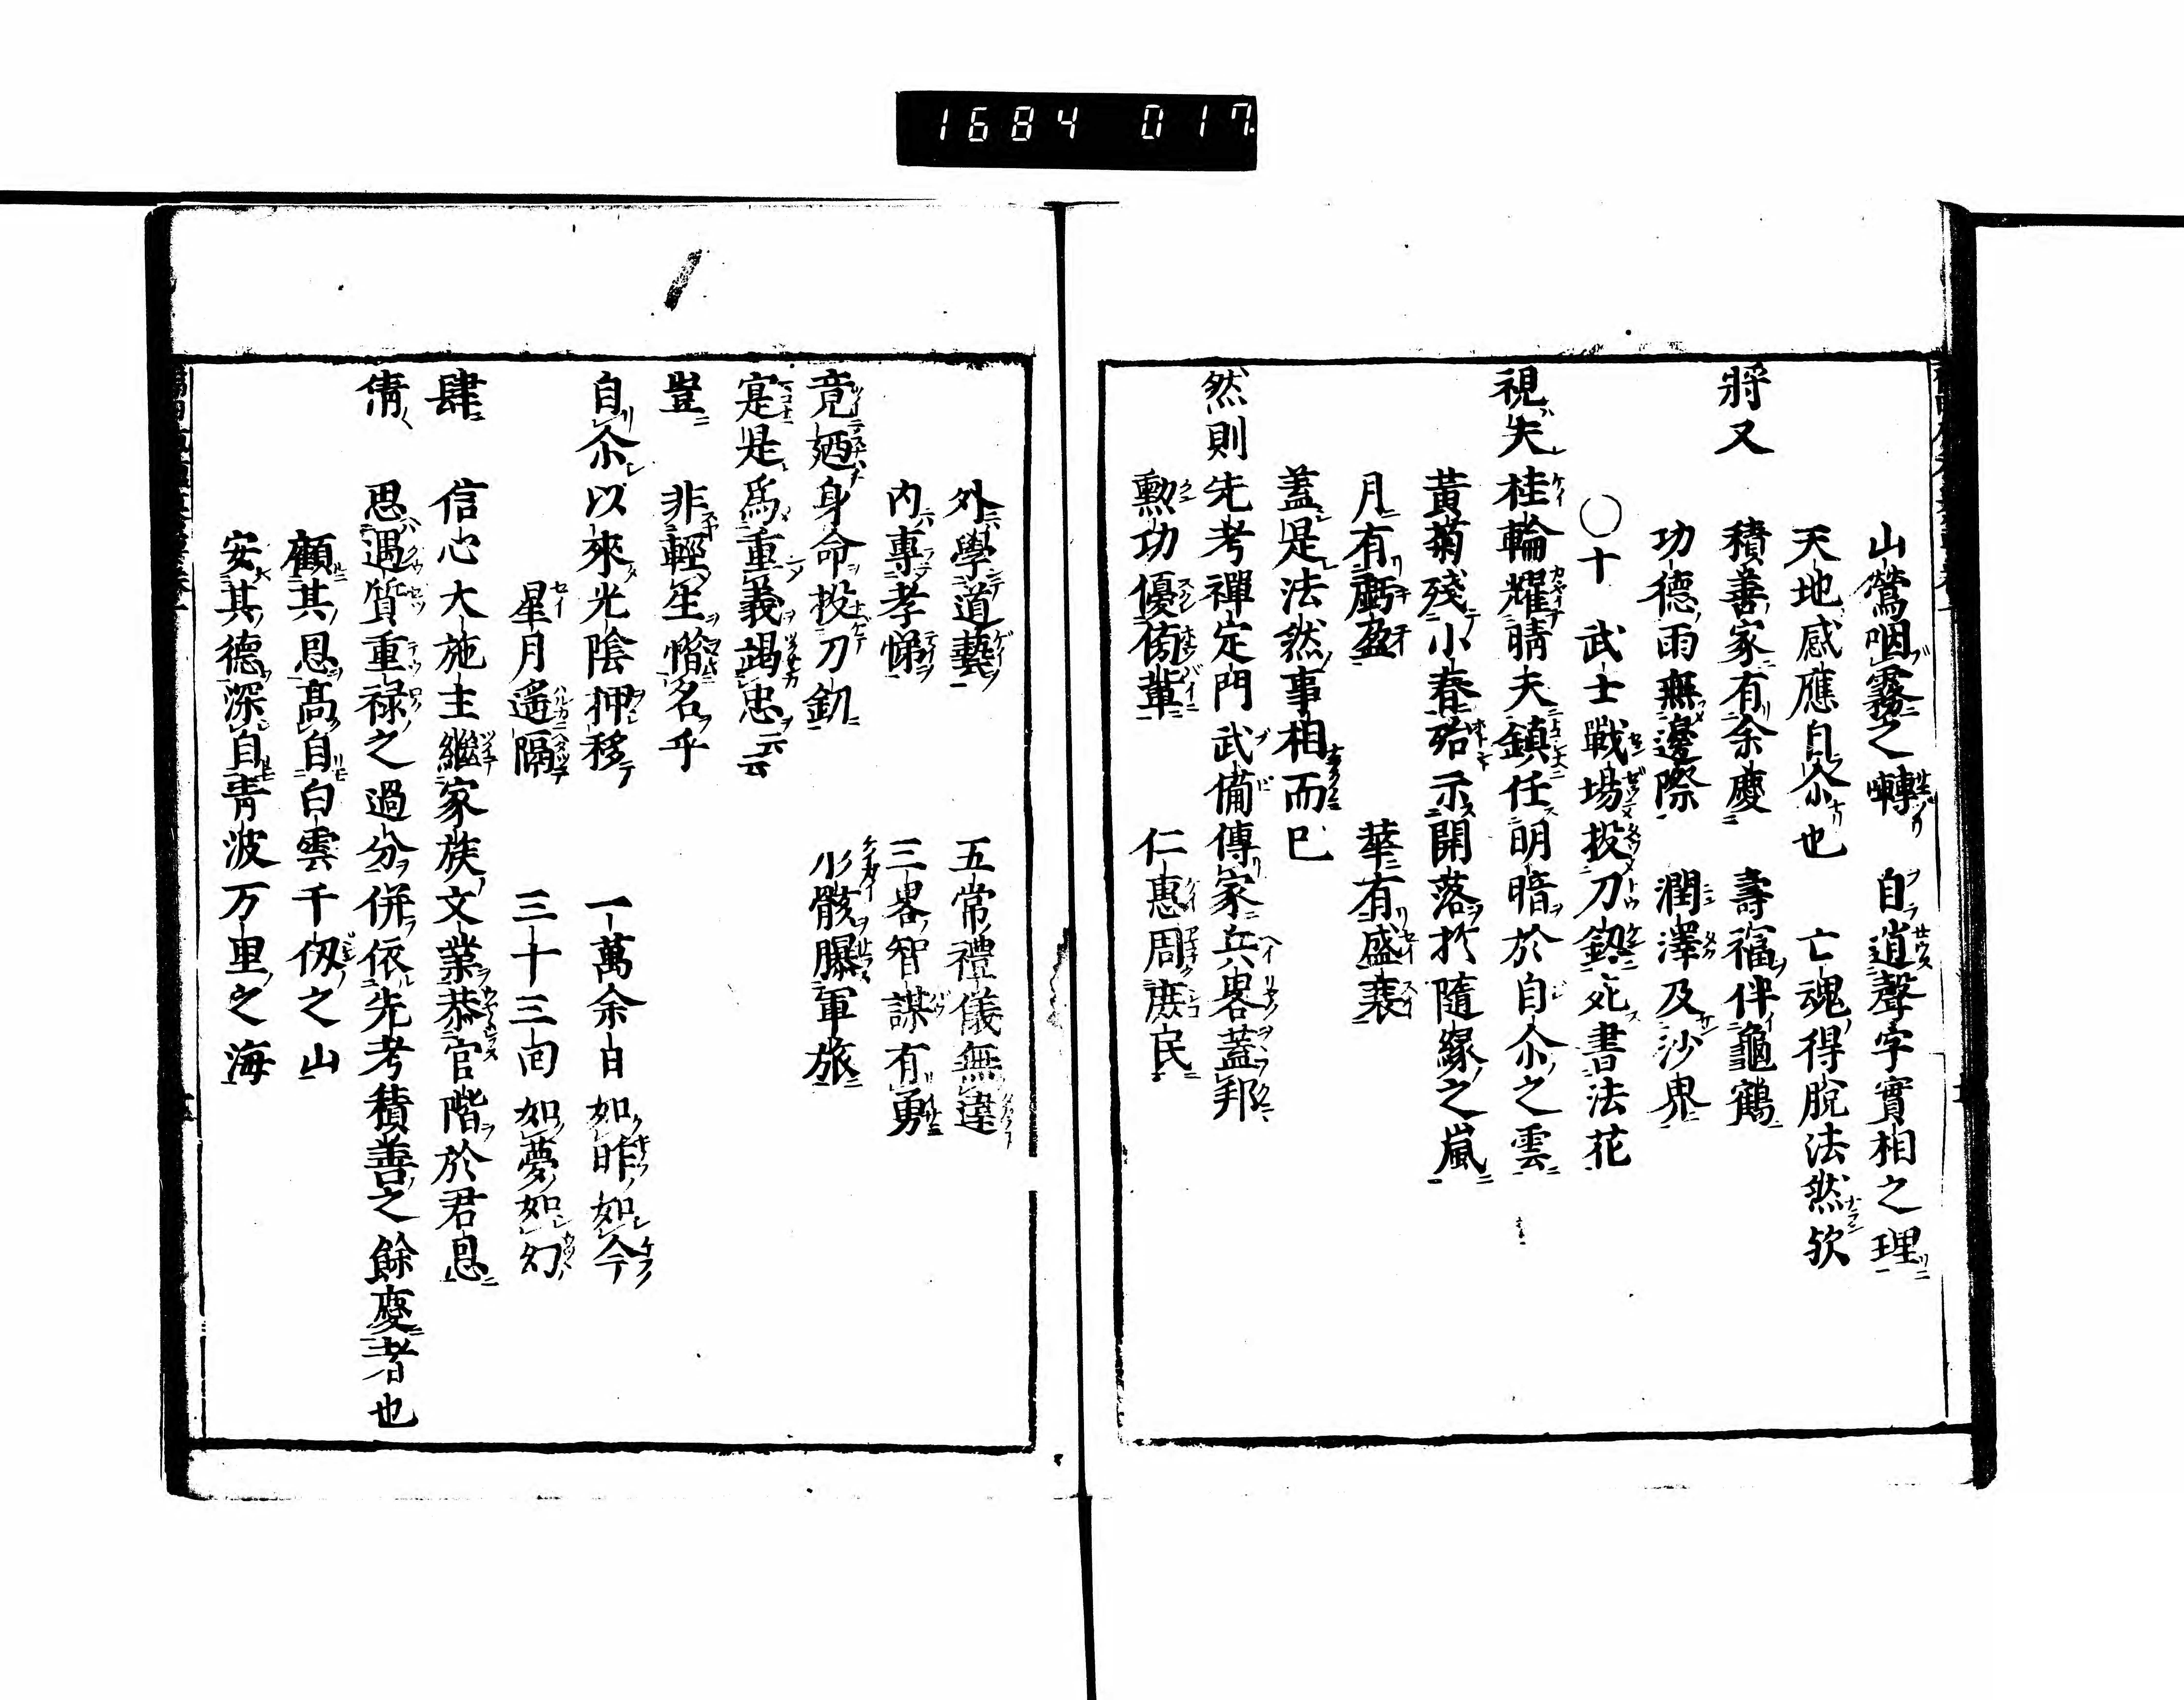 1684 017
山鶯咽霧之囀 自逍聲字實相之理
天地感應自尒也 亡魂得脫法然欤
將又 積善家有余慶 壽福伴龜鶴
功德雨無邊際 潤澤及沙界
○十 武士戰場投刀釼死書法花
視夫桂輪耀晴夫鎮任明暗於自尒之雲
黃菊殘小春殆示開落於隨緣之嵐
月有虧盈 華有盛衰
蓋是法然事相而已
然則先考禪定門武備傳家兵畧蓋邦
勲功優傍輩 仁惠周庶民
外學道藝 五常禮儀無違
内專孝悌 三畧智謀有勇
竟廼身命投刀釼 骸曝軍旅
寔是爲重義竭忠云云
豈 非輕生惜名乎
自尒以來光陰押移 一萬余日如昨如今
星月遙隔 三十三囘如夢如幻
肆 信心大施主繼家族文業恭官階於君恩
倩 思遇質重禄之過分併依先考積善之餘慶者也
顧其恩高自白雲千仭之山
安其德深自靑波万里之海